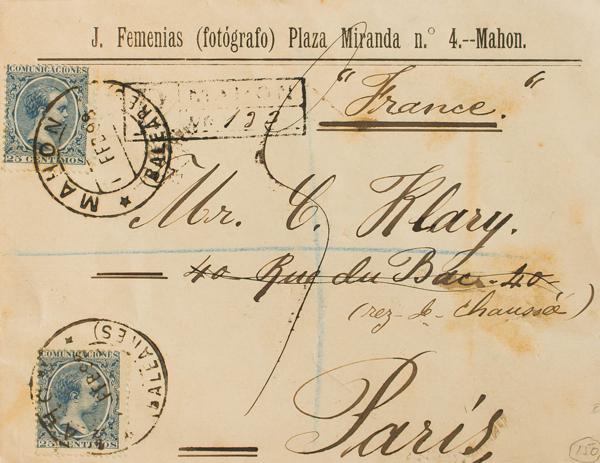 J. Femenias (fotógrafo) Plaza Miranda n.° 4.--Mahon.
COMUNICACIONES
25 CENTIMOS
MAHON
(BALEARES)
FEB 98
MAHON
133
"France."
Mr. C. Klary.
40 Rue du Bac. 40
(rez-de-chaussée)
COMUNICACIONES
25 CENTIMOS
(BALEARES)
París,
150